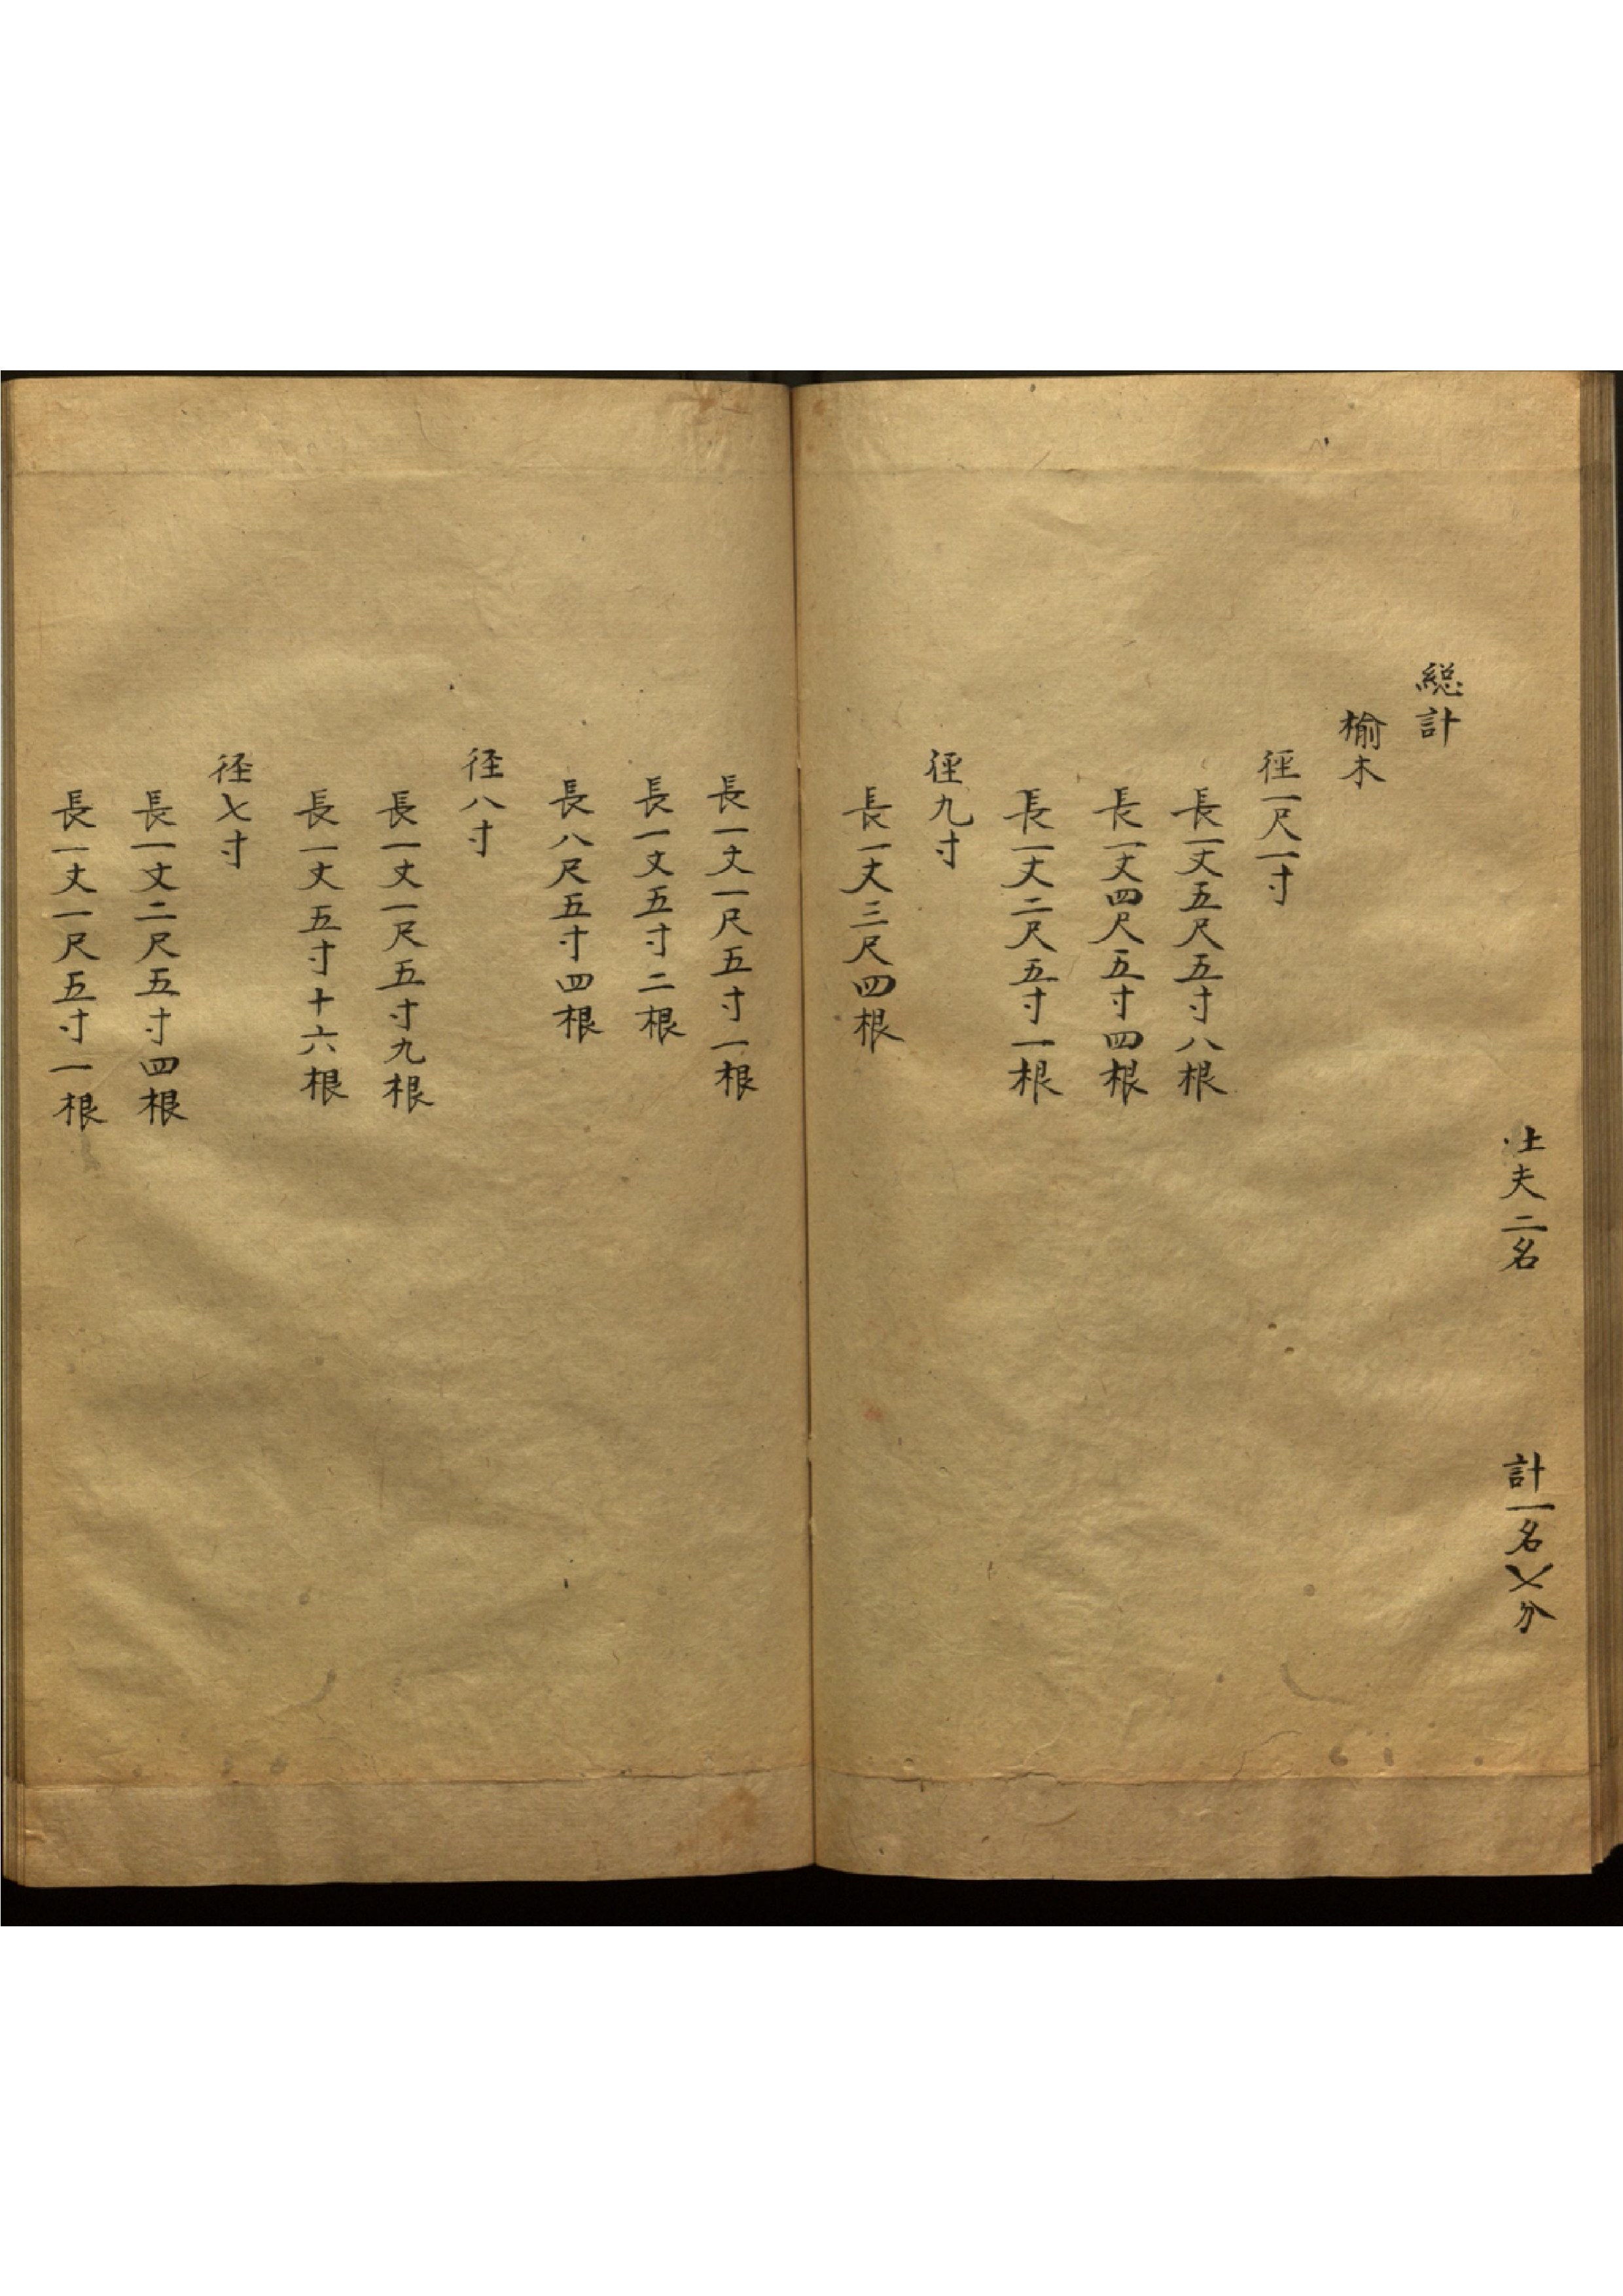 土夫二名 計一名七分
総計
榆木
徑一尺一寸
長一丈五尺五寸八根
長一丈四尺五寸四根
長一丈二尺五寸一根
徑九寸
長一丈三尺四根
長一丈一尺五寸一根
長一丈五寸二根
長八尺五寸四根
径八寸
長一丈一尺五寸九根
長一丈五寸十六根
径七寸
長一丈二尺五寸四根
長一丈一尺五寸一根